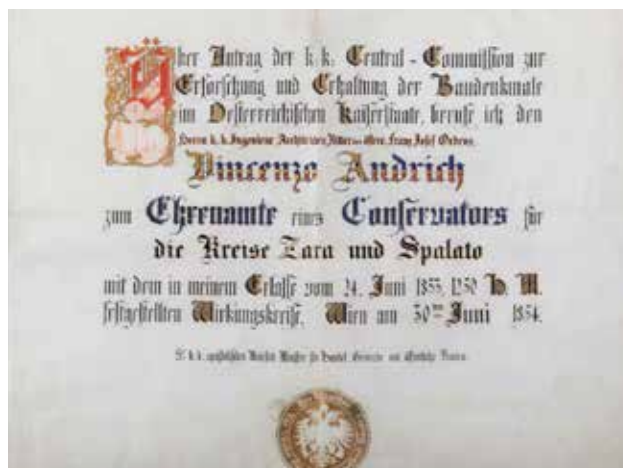 Über Antrag der k. k. Central-Commission zur
Erforschung und Erhaltung der Baudenkmale
im Oesterreichischen Kaiserstaate, berufe ich den
Herrn k. k. Ingenieur Architecten, Ritter des österr. Franz Josef Ordens,
Vincenzo Andrich
zum Ehrenamte eines Conservators für
die Kreise Zara und Spalato
mit dem in meinem Erlasse vom 24. Juni 1853, 1250 H. M.
festgestellten Wirkungskreise, Wien am 30ten Juni 1854.
Minister für Handel Gewerbe und öffentliche Bauten.